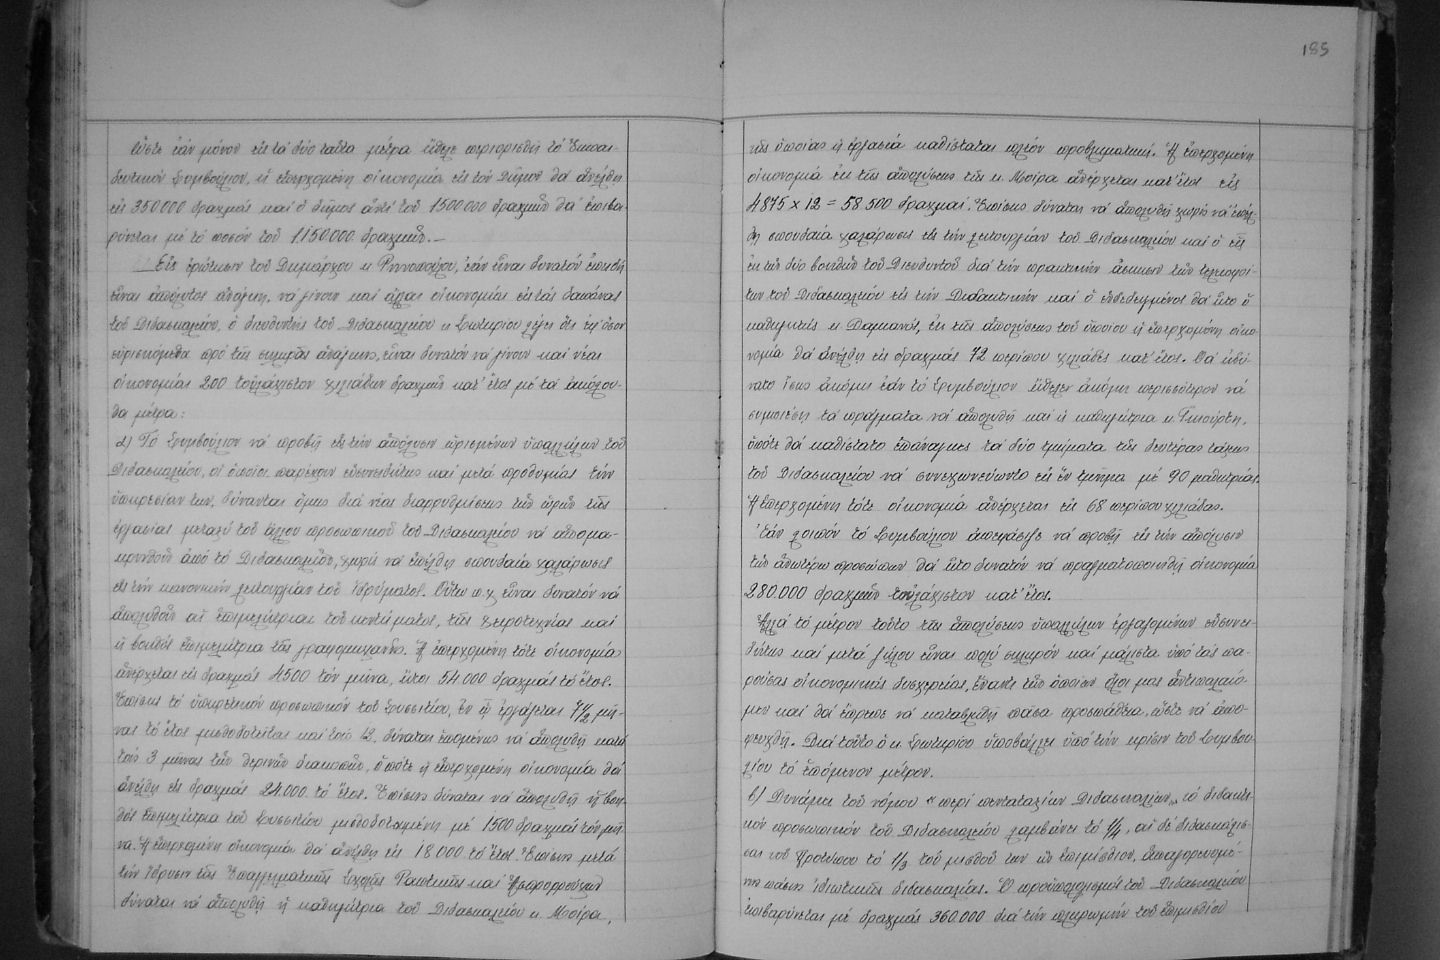 ὥστε ἐὰν μόνον εἰς τὰ δύο ταῦτα μέτρα ἤθελε περιορισθῆ τὸ Ἐκπαι-
δευτικὸν Συμβούλιον, ἡ ἐπερχομένη οἰκονομία εἰς τὸν Δῆμον θὰ ἀνέλθη
εἰς 350.000 δραχμὰς καὶ ὁ δῆμος ἀντὶ τοῦ 1500000 δραχμῶν θὰ ἐπιβα-
ρύνεται μὲ τὸ ποσὸν τοῦ 1.150.000 δραχμῶν.—
Εἰς ἐρώτησιν τοῦ Δημάρχου κ. Ρηνοπούλου, ἐὰν εἶναι δυνατὸν ἐπειδὴ
εἶναι ἀπόλυτος ἀνάγκη, νὰ γίνουν καὶ ἄλλαι οἰκονομίαι εἰς τὰς δαπάνας
τοῦ Διδασκαλείου, ὁ διευθυντὴς τοῦ Διδασκαλείου κ. Σωτηρίου λέγει ὅτι ἐφ' ὅσον
εὑρισκόμεθα πρὸ τῆς σκληρᾶς ἀνάγκης, εἶναι δυνατὸν νὰ γίνουν καὶ νέαι
οἰκονομίαι 200 τοὐλάχιστον χιλιάδων δραχμῶν κατ' ἔτος μὲ τὰ ἀκόλου-
θα μέτρα:
α) Τὸ Συμβούλιον νὰ προβῆ εἰς τὴν ἀπόλυσιν ὡρισμένων ὑπαλλήλων τοῦ
Διδασκαλείου, οἱ ὁποῖοι παρέχουν εὐσυνειδήτως καὶ μετὰ προθυμίας τὴν
ὑπηρεσίαν των, δύνανται ὅμως διὰ νέας διαρρυθμίσεως τῶν ὡρῶν τῆς
ἐργασίας μεταξὺ τοῦ ἄλλου προσωπικοῦ τοῦ Διδασκαλείου νὰ ἀπομα-
κρυνθοῦν ἀπὸ τὸ Διδασκαλεῖον, χωρὶς νὰ ἐπέλθη σπουδαία χαλάρωσις
εἰς τὴν κανονικὴν λειτουργίαν τοῦ Ἱδρύματος. Οὕτω π.χ. εἶναι δυνατὸν νὰ
ἀπολυθοῦν αἱ ἐπιμελήτριαι τοῦ κεντήματος, τῆς χειροτεχνίας καὶ
ἡ βοηθὸς ἐπιμελήτρια τῆς γραφομηχανῆς. Ἡ ἐπερχομένη τότε οἰκονομία
ἀνέρχεται εἰς δραχμὰς 4500 τὸν μῆνα, ἤτοι 54.000 δραχμὰς τὸ ἔτος.
Ἐπίσης τὸ ὑπηρετικὸν προσωπικὸν τοῦ Συσσιτίου, ἐν ᾧ ἐργάζεται 7½ μῆ-
νας τὸ ἔτος μισθοδοτεῖται καὶ τοὺς 12, δύναται ἑπομένως νὰ ἀπολυθῆ κατὰ
τοὺς 3 μῆνας τῶν θερινῶν διακοπῶν, ὁπότε ἡ ἐπερχομένη οἰκονομία θὰ
ἀνέλθη εἰς δραχμὰς 24.000 τὸ ἔτος. Ἐπίσης δύναται νὰ ἀπολυθῆ ἡ βοη-
θὸς ἐπιμελήτρια τοῦ Συσσιτίου μισθοδοτουμένη μὲ 1500 δραχμὰς τὸν μῆ-
να. Ἡ ἐπερχομένη οἰκονομία θὰ ἀνέλθη εἰς 18000 τὸ ἔτος. Ἐπίσης μετὰ
τὴν ἵδρυσιν τῆς Ἐπαγγελματικῆς Σχολῆς Ραπτικῆς καὶ Ἀσπρορρούχων
δύναται νὰ ἀπολυθῆ ἡ καθηγήτρια τοῦ Διδασκαλείου κ. Μοίρα,
185
τῆς ὁποίας ἡ ἐργασία καθίσταται πλέον προβληματική. Ἡ ἐπερχομένη
οἰκονομία ἐκ τῆς ἀπολύσεως τῆς κ. Μοίρα ἀνέρχεται κατ' ἔτος εἰς
4875 × 12 = 58.500 δραχμάς. Ἐπίσης δύναται νὰ ἀπολυθῆ χωρὶς νὰ ἐπέλ-
θη σπουδαία χαλάρωσις εἰς τὴν λειτουργίαν τοῦ Διδασκαλείου καὶ ὁ εἷς
ἐκ τῶν δύο βοηθῶν τοῦ Διευθυντοῦ διὰ τὴν πρακτικὴν ἄσκησιν τῶν τελειοφοί-
των τοῦ Διδασκαλείου εἰς τὴν Διδακτικὴν καὶ ὁ ἐνδεδειγμένος θὰ ἦτο ὁ
καθηγητὴς κ. Δαμιανός, ἐκ τῆς ἀπολύσεως τοῦ ὁποίου ἡ ἐπερχομένη οἰκο-
νομία θὰ ἀνέλθη εἰς δραχμὰς 72 περίπου χιλιάδες κατ' ἔτος. Θὰ ἐδύ-
νατο ἴσως ἀκόμη ἐὰν τὸ Συμβούλιον ἤθελεν ἀκόμη περισσότερον νὰ
συμπιέση τὰ πράγματα, νὰ ἀπολυθῆ καὶ ἡ καθηγήτρια κ. Γκιούρτη,
ὁπότε θὰ καθίστατο ἐπάναγκες τὰ δύο τμήματα τῆς δευτέρας τάξεως
τοῦ Διδασκαλείου νὰ συνεχωνεύωντο εἰς ἓν τμῆμα μὲ 90 μαθητρίας.
Ἡ ἐπερχομένη τότε οἰκονομία ἀνέρχεται εἰς 68 περίπου χιλιάδας.
Ἐὰν λοιπὸν τὸ Συμβούλιον ἀπεφάσιζε νὰ προβῆ εἰς τὴν ἀπόλυσιν
τῶν ἀνωτέρω προσώπων θὰ ἦτο δυνατὸν νὰ πραγματοποιηθῆ οἰκονομία
280.000 δραχμῶν τοὐλάχιστον κατ' ἔτος.
Ἀλλὰ τὸ μέτρον τοῦτο τῆς ἀπολύσεως ὑπαλλήλων ἐργαζομένων εὐσυνει-
δήτως καὶ μετὰ ζήλου εἶναι πολὺ σκληρὸν καὶ μάλιστα ὑπὸ τὰς πα-
ρούσας οἰκονομικὰς δυσχερείας, ἔναντι τῶν ὁποίων ὅλοι μας ἀντιπαλαίο-
μεν καὶ θὰ ἔπρεπε νὰ καταβληθῆ πᾶσα προσπάθεια, ὥστε νὰ ἀπο-
φευχθῆ. Διὰ τοῦτο ὁ κ. Σωτηρίου ὑποβάλλει ὑπὸ τὴν κρίσιν τοῦ Συμβου-
λίου τὸ ἑπόμενον μέτρον.
β) Δυνάμει τοῦ νόμου «περὶ πενταταξίων Διδασκαλείων» τὸ διδακτι-
κὸν προσωπικὸν τοῦ Διδασκαλείου λαμβάνει τὸ ¼, αἱ δὲ διδασκάλισ-
σαι τοῦ Προτύπου τὸ ⅓ τοῦ μισθοῦ των ὡς ἐπιμίσθιον, ἀπαγορευομέ-
νης πάσης ἰδιωτικῆς διδασκαλίας. Ὁ προϋπολογισμὸς τοῦ Διδασκαλείου
ἐπιβαρύνεται μὲ δραχμὰς 360.000 διὰ τὴν πληρωμὴν τοῦ ἐπιμισθίου